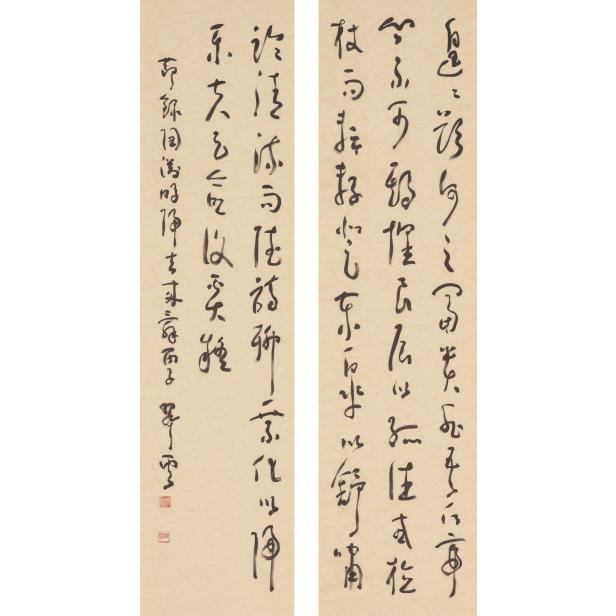 遑々欲何之富貴非吾願帝
鄉不可期懷良辰以孤往或植
杖而耘耔登東皋以舒嘯
臨清流而賦詩聊乘化以歸
樂夫天命復奚疑
節錄陶淵明歸去來辭丙子 雲